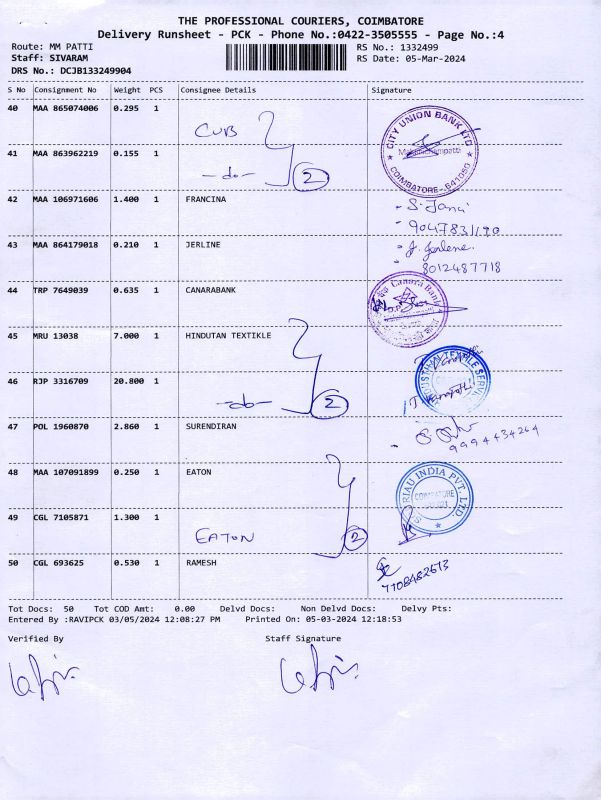 THE PROFESSIONAL COURIERS, COIMBATORE
Delivery Runsheet - PCK - Phone No.:0422-3505555 - Page No.:4
Route: MM PATTI RS No.: 1332499
Staff: SIVARAM RS Date: 05-Mar-2024
DRS No.: DCJB133249904
S No Consignment No Weight PCS Consignee Details Signature
40 MAA 865074006 0.295 1 CUB
CITY UNION BANK LTD
COIMBATORE-641050
41 MAA 863962219 0.155 1 -do- 2
42 MAA 106971606 1.400 1 FRANCINA
9047831190
43 MAA 864179018 0.210 1 JERLINE J. Jerlene.
8012487718
44 TRP 7649039 0.635 1 CANARABANK Canara Bank
45 MRU 13038 7.000 1 HINDUTAN TEXTIKLE
46 RJP 3316709 20.800 1 -do- 2
47 POL 1960870 2.860 1 SURENDIRAN
9994434264
48 MAA 107091899 0.250 1 EATON
INDIA PVT. LTD.
COIMBATORE
49 CGL 7105871 1.300 1 EATON 2
50 CGL 693625 0.530 1 RAMESH
7108482673
Tot Docs: 50 Tot COD Amt: 0.00 Delvd Docs: Non Delvd Docs: Delvy Pts:
Entered By :RAVIPCK 03/05/2024 12:08:27 PM Printed On: 05-03-2024 12:18:53
Verified By Staff Signature